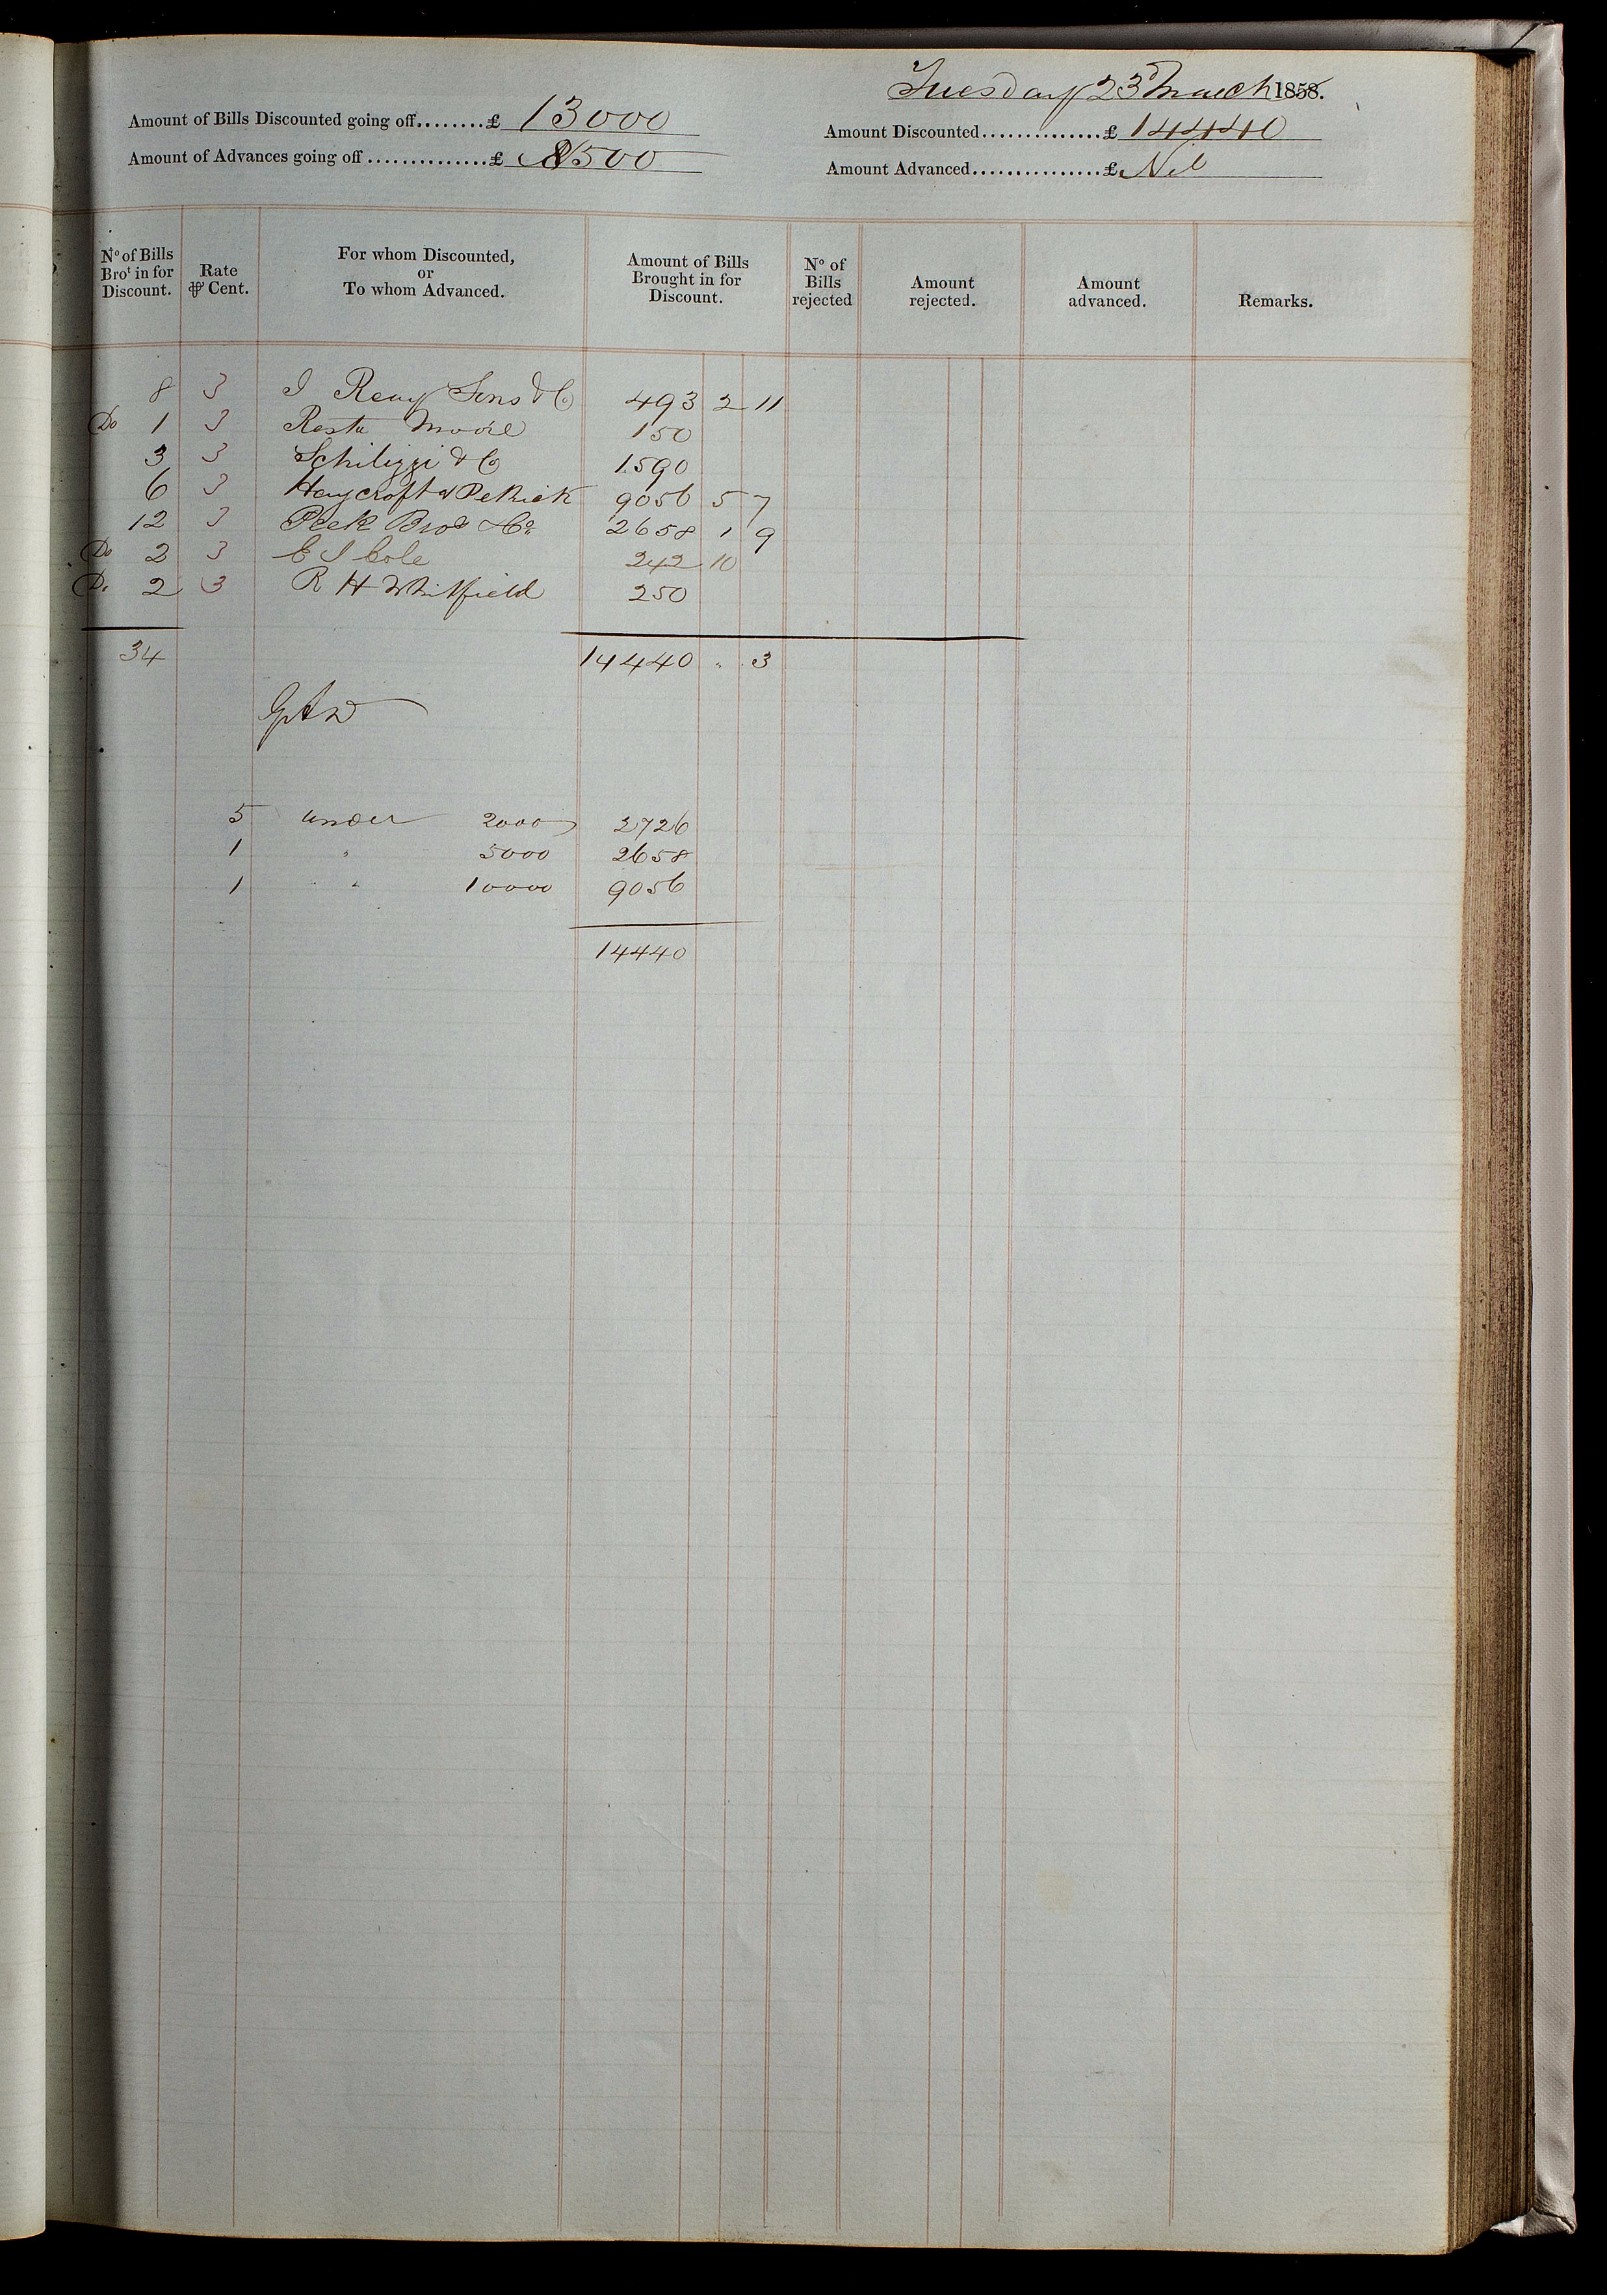 Tuesday 23d March 1858.
Amount of Bills Discounted going off........£ 13000
Amount Discounted..............£ 14440
Amount of Advances going off..............£ 8500
Amount Advanced................£ Nil
No of Bills Brot in for Discount. Rate ⅌ Cent. For whom Discounted, or To whom Advanced. Amount of Bills Brought in for Discount. No of Bills rejected Amount rejected. Amount advanced. Remarks.
8 3 J Reay Sons & Co 493 2 11
Do 1 3 Moore 150
3 3 Schilizzi & Co 1590
6 3 Haycroft & Pethick 9056 5 7
12 3 Peek Bros & Co 2658 1 9
Do 2 3 E J Cole 242 10
Do 2 3 R H Whitfield 250
34 14440 " 3
5 under 2000 2726
1 " 5000 2658
1 " " 10000 9056
14440